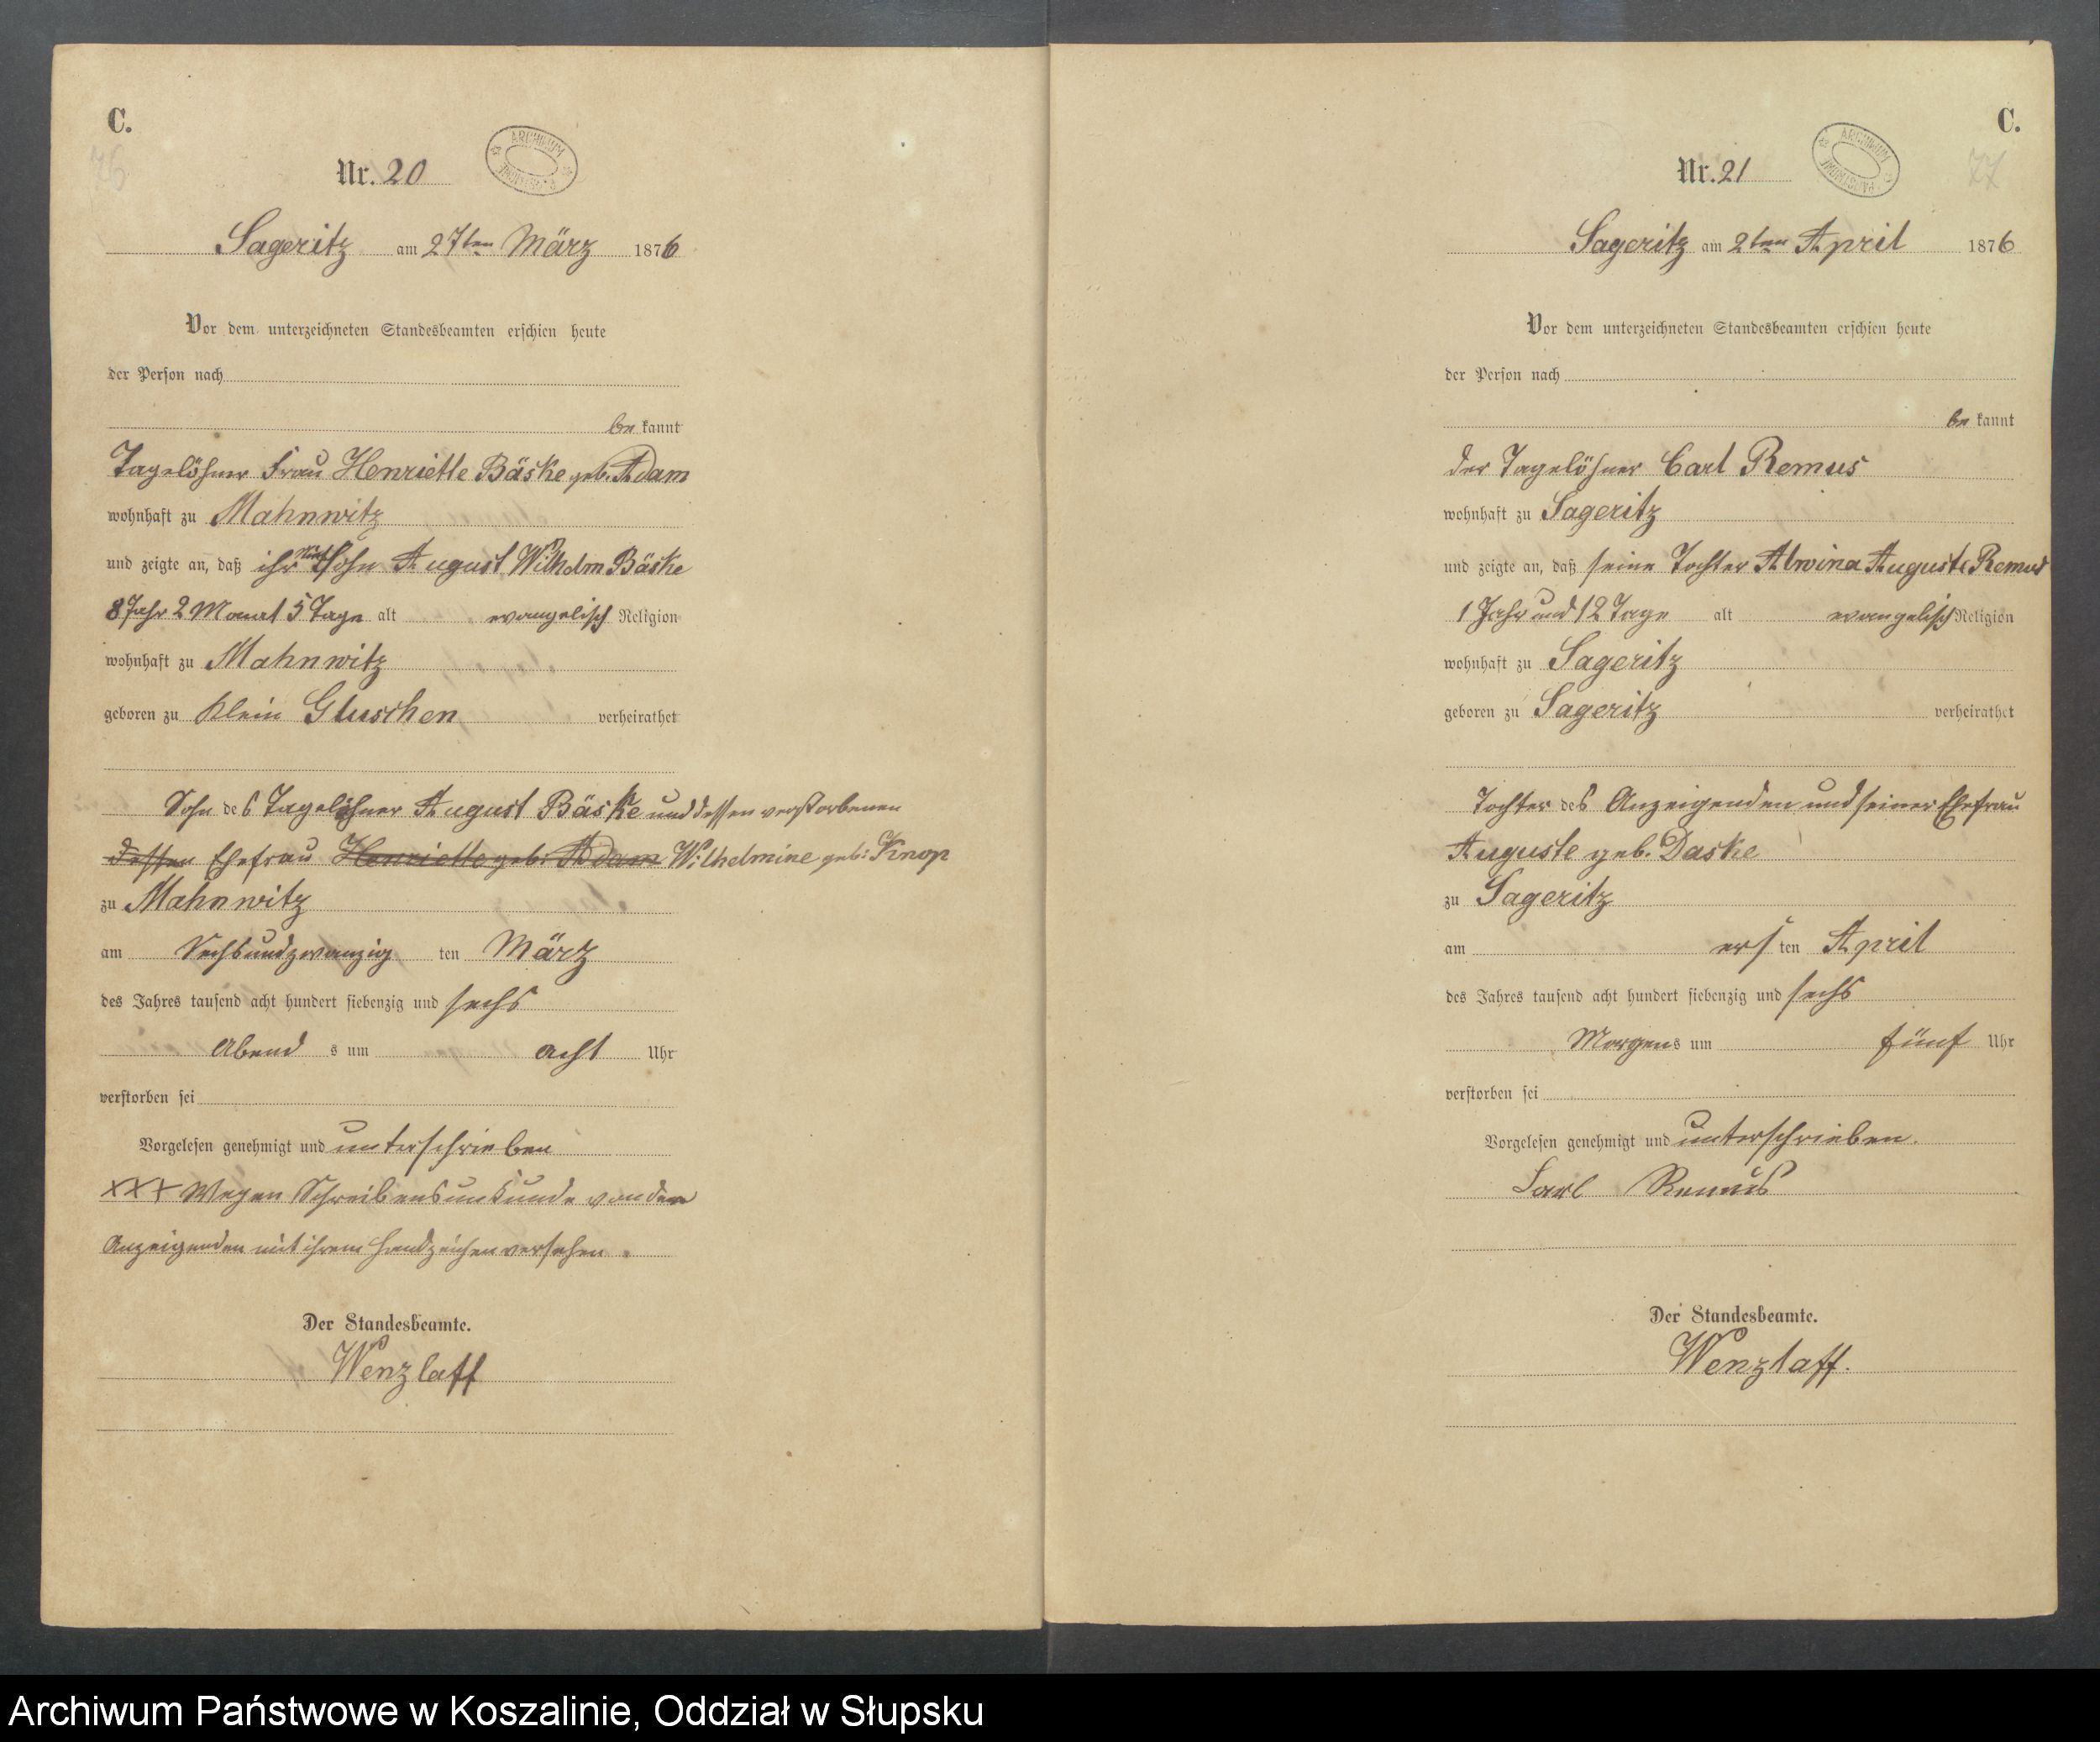 C.
76
Nr. 20
ARCHIWUM PAŃSTWOWE
Sageritz am 27ten März 1876
Vor dem unterzeichneten Standesbeamten erschien heute
der Person nach
be kannt
Tagelöhner Frau Henriette Bäske geb. Adam
wohnhaft zu Mahnwitz
und zeigte an, daß ihr Sohn August Wilhelm Bäske
8 Jahr 2 Monat 5 Tage alt evangelisch Religion
wohnhaft zu Mahnwitz
geboren zu Klein Gluschen verheirathet
Sohn des Tagelöhner August Bäske und dessen verstorbenen
dessen Ehefrau Henriette geb: Adam Wilhelmine geb: Knop
zu Mahnwitz
am Sechsundzwanzig ten März
des Jahres tausend acht hundert siebenzig und sechs
Abend s um acht Uhr
verstorben sei
Vorgelesen genehmigt und unterschrieben
XXX Wegen Schreibensunkunde von dem
Anzeigenden mit ihrem Handzeichen versehen.
Der Standesbeamte.
Wenzlaff
C.
77
Nr. 21
ARCHIWUM PAŃSTWOWE
Sageritz am 2ten April 1876
Vor dem unterzeichneten Standesbeamten erschien heute
der Person nach
be kannt
der Tagelöhner Carl Remus
wohnhaft zu Sageritz
und zeigte an, daß seine Tochter Alwina Auguste Remus
1 Jahr und 12 Tage alt evangelisch Religion
wohnhaft zu Sageritz
geboren zu Sageritz verheirathet
Tochter des Anzeigenden und seiner Ehefrau
Auguste geb. Daske
zu Sageritz
am ers ten April
des Jahres tausend acht hundert siebenzig und sechs
Morgens um fünf Uhr
verstorben sei
Vorgelesen genehmigt und unterschrieben.
Carl Remus
Der Standesbeamte.
Wenzlaff.
Archiwum Państwowe w Koszalinie, Oddział w Słupsku